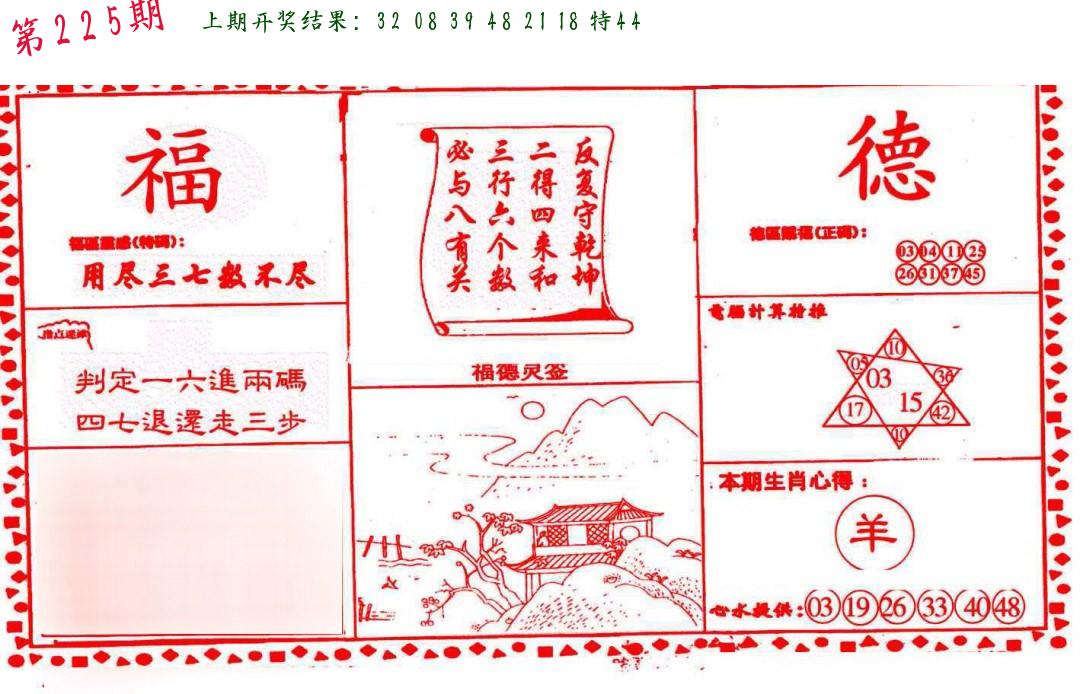 第225期
上期开奖结果：32 08 39 48 21 18 特44
福
福區靈感(特碼)：
用尽三七数不尽
判定一六進兩碼
四七退還走三步
反复守乾坤
二得四来和
三行六个数
必与八有关
福德灵签
德
德區賜福(正碼)：
03 04 11 25
26 31 37 45
電腦計算特推
10
05 03 36
17 15 42
10
本期生肖心得：
羊
心水提供：03 19 26 33 40 48